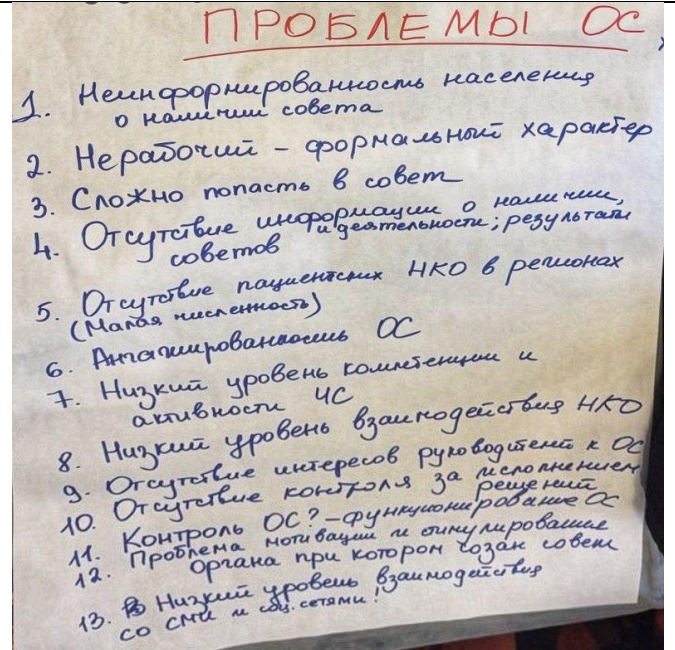 ПРОБЛЕМЫ ОС
1. Неинформированность населения
о наличии совета
2. Нерабочий – формальный характер
3. Сложно попасть в совет
4. Отсутствие информации о наличии,
и деятельности; результаты
советов
5. Отсутствие пациентских НКО в регионах
(Малая численность)
6. Ангажированность ОС
7. Низкий уровень компетенции и
активности ЧС
8. Низкий уровень взаимодействия НКО
9. Отсутствие интересов руководител к ОС
10. Отсутствие контроля за исполнением
решений
11. Контроль ОС? – функционирование ОС
12. Проблема мотивации и стимулирование
органа при котором созан совет
13. В Низкий уровень взаимодействия
со СМИ и соц. сетями!